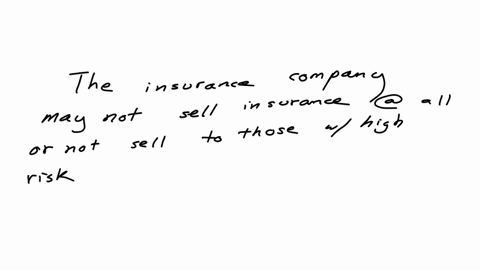 The insurance company
may not sell insurance @ all
or not sell to those w/ high
risk